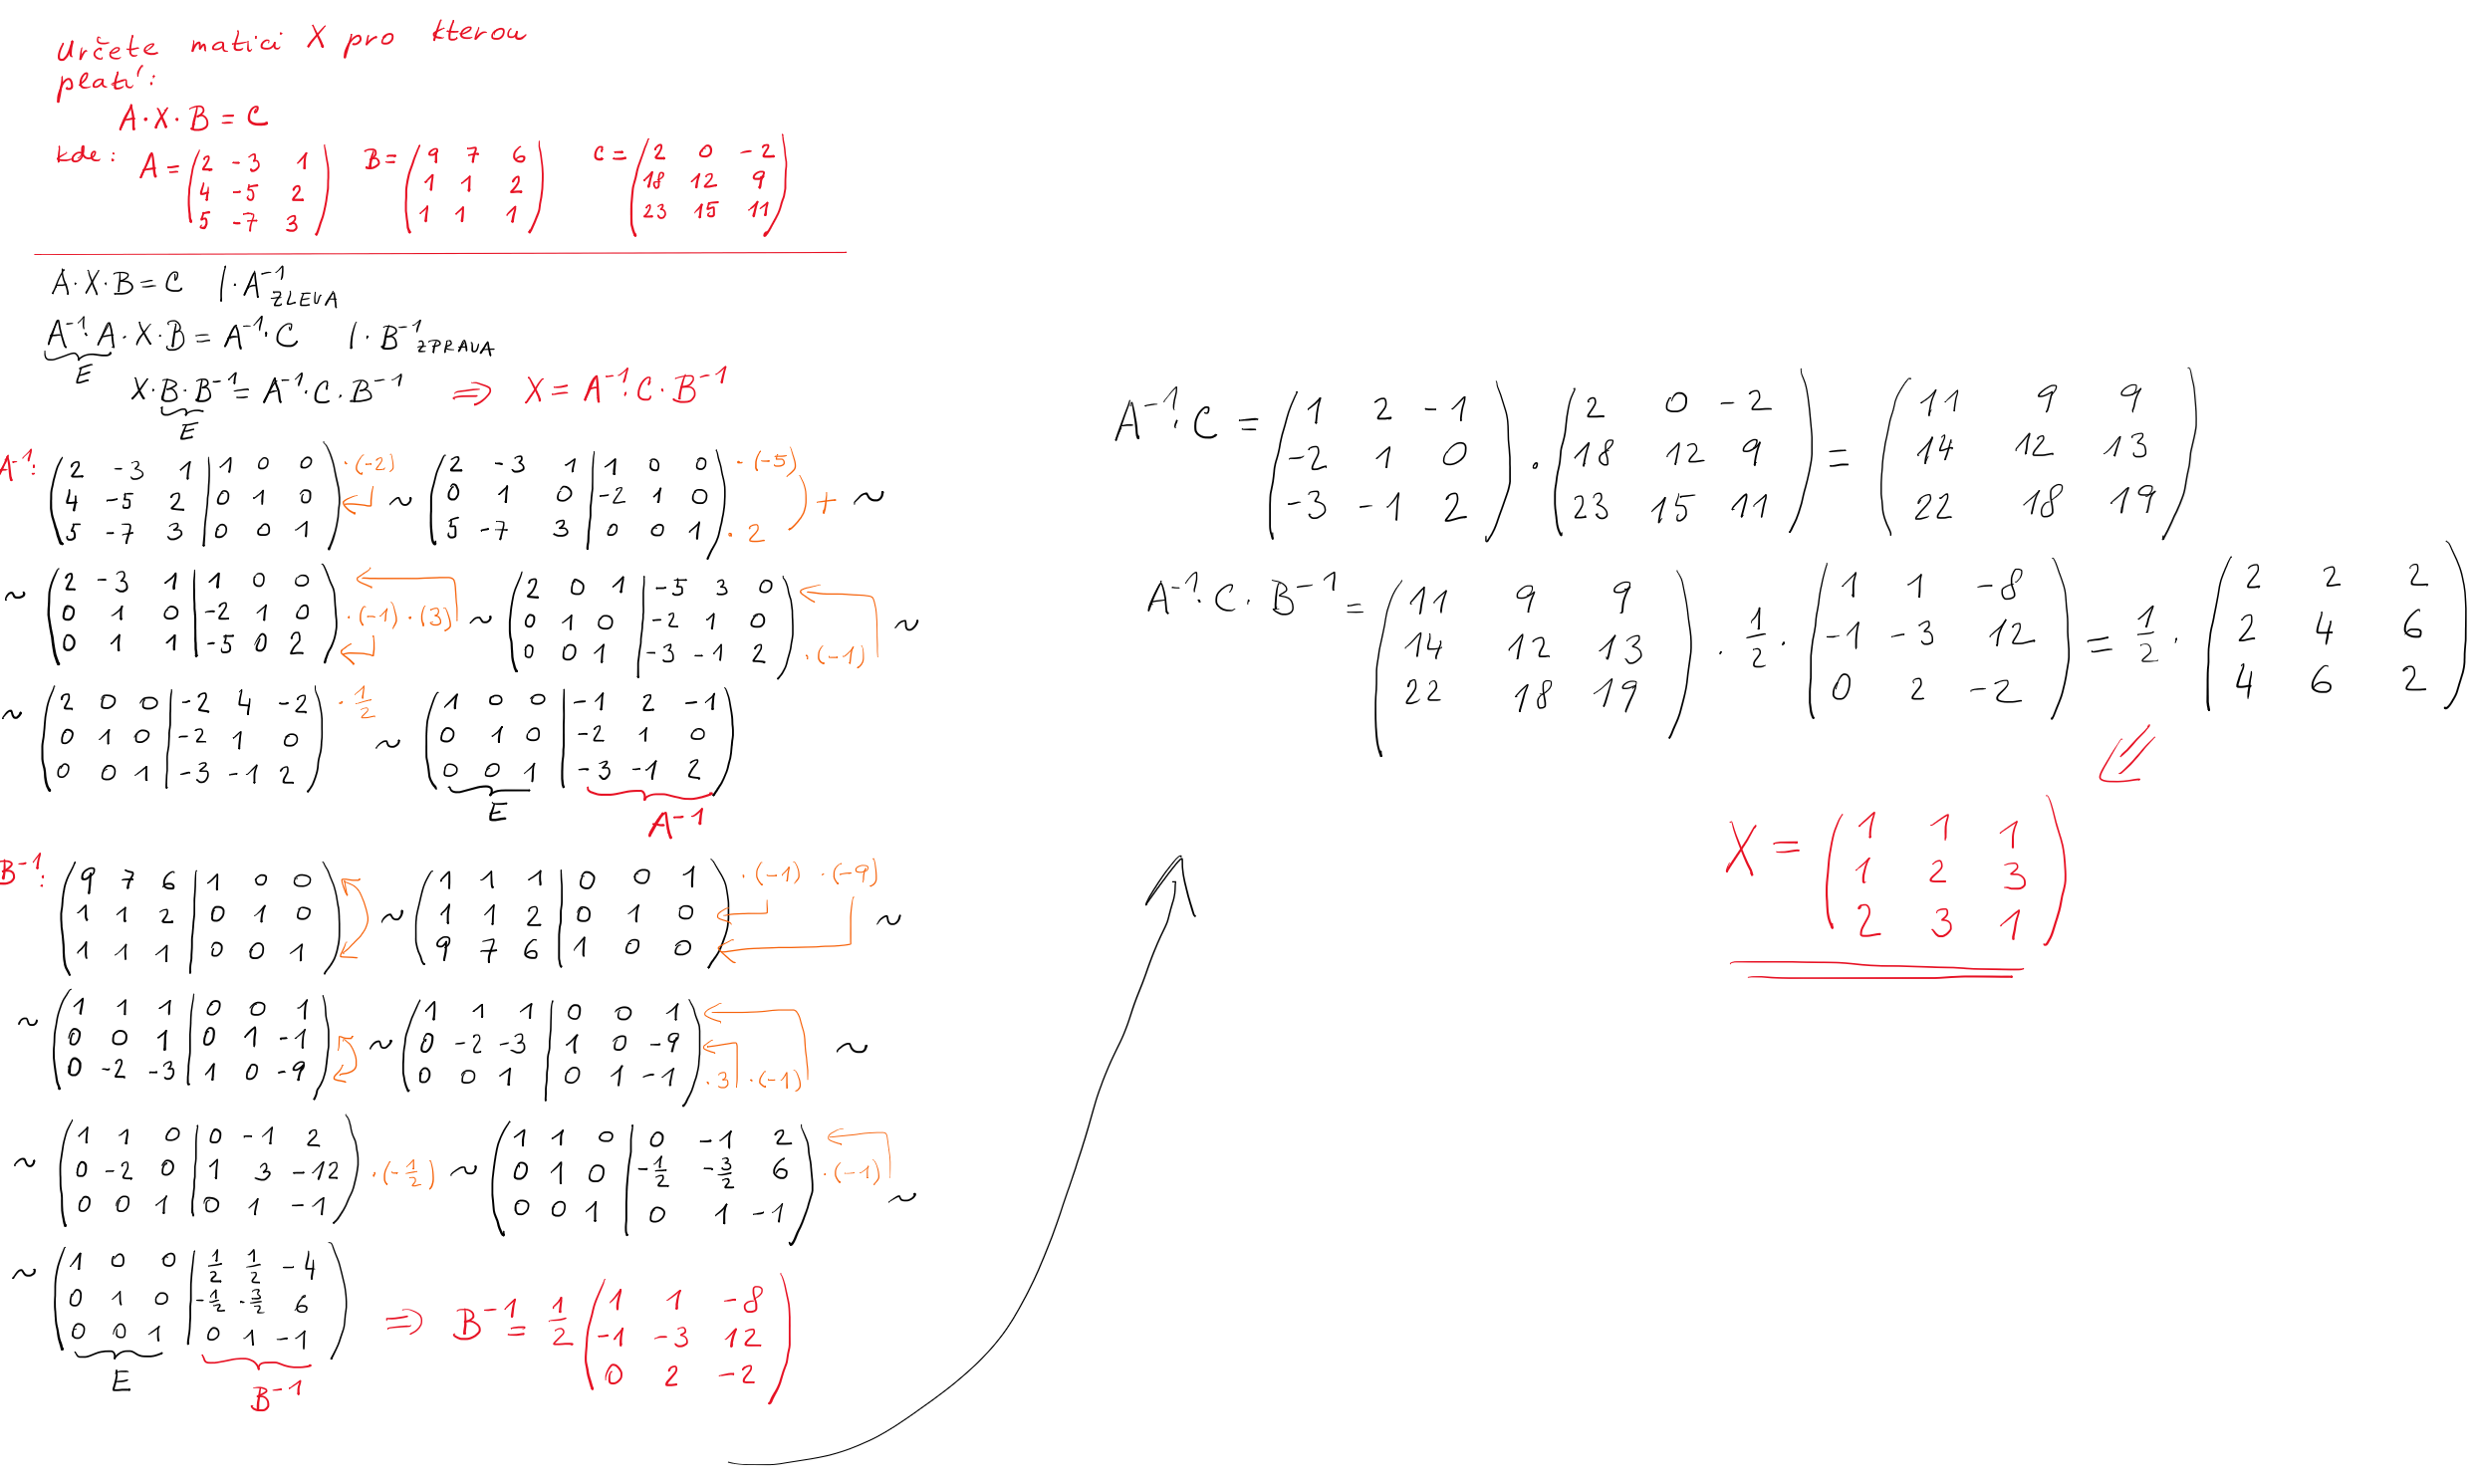 Určete matici X pro kterou
platí:
A·X·B = C
kde: A = (2 -3 1; 4 -5 2; 5 -7 3) B = (9 7 6; 1 1 2; 1 1 1) C = (2 0 -2; 18 12 9; 23 15 11)
A·X·B = C |·A⁻¹ ZLEVA
A⁻¹·A·X·B = A⁻¹·C |·B⁻¹ ZPRAVA
E
X·B·B⁻¹ = A⁻¹·C·B⁻¹ ⇒ X = A⁻¹·C·B⁻¹
E
A⁻¹: (2 -3 1 | 1 0 0; 4 -5 2 | 0 1 0; 5 -7 3 | 0 0 1) ·(-2) ~ (2 -3 1 | 1 0 0; 0 1 0 | -2 1 0; 5 -7 3 | 0 0 1) ·(-5) ·2 + ~
~ (2 -3 1 | 1 0 0; 0 1 0 | -2 1 0; 0 1 1 | -5 0 2) ·(-1) ·(3) ~ (2 0 1 | -5 3 0; 0 1 0 | -2 1 0; 0 0 1 | -3 -1 2) ·(-1) ~
~ (2 0 0 | -2 4 -2; 0 1 0 | -2 1 0; 0 0 1 | -3 -1 2) ·1/2 ~ (1 0 0 | -1 2 -1; 0 1 0 | -2 1 0; 0 0 1 | -3 -1 2)
E A⁻¹
B⁻¹: (9 7 6 | 1 0 0; 1 1 2 | 0 1 0; 1 1 1 | 0 0 1) ~ (1 1 1 | 0 0 1; 1 1 2 | 0 1 0; 9 7 6 | 1 0 0) ·(-1) ·(-9) ~
~ (1 1 1 | 0 0 1; 0 0 1 | 0 1 -1; 0 -2 -3 | 1 0 -9) ~ (1 1 1 | 0 0 1; 0 -2 -3 | 1 0 -9; 0 0 1 | 0 1 -1) ·3 ·(-1) ~
~ (1 1 0 | 0 -1 2; 0 -2 0 | 1 3 -12; 0 0 1 | 0 1 -1) ·(-1/2) ~ (1 1 0 | 0 -1 2; 0 1 0 | -1/2 -3/2 6; 0 0 1 | 0 1 -1) ·(-1) ~
~ (1 0 0 | 1/2 1/2 -4; 0 1 0 | -1/2 -3/2 6; 0 0 1 | 0 1 -1) ⇒ B⁻¹ = 1/2 (1 1 -8; -1 -3 12; 0 2 -2)
E B⁻¹
A⁻¹·C = (1 2 -1; -2 1 0; -3 -1 2) · (2 0 -2; 18 12 9; 23 15 11) = (11 9 9; 14 12 13; 22 18 19)
A⁻¹·C·B⁻¹ = (11 9 9; 14 12 13; 22 18 19) · 1/2 · (1 1 -8; -1 -3 12; 0 2 -2) = 1/2 · (2 2 2; 2 4 6; 4 6 2)
X = (1 1 1; 1 2 3; 2 3 1)